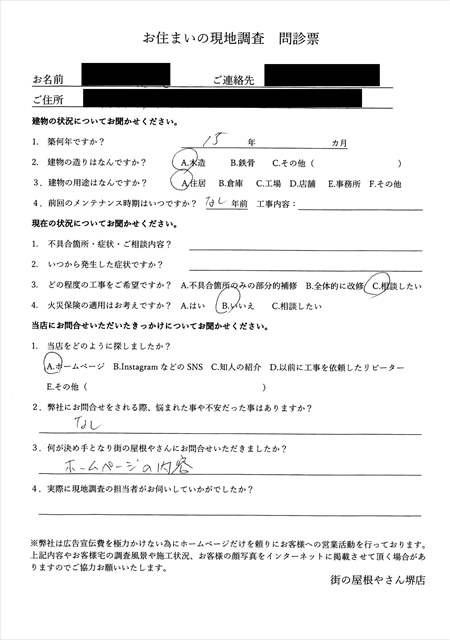 お住まいの現地調査 問診票
お名前 ご連絡先
ご住所
建物の状況についてお聞かせください。
1. 築何年ですか? 15 年 カ月
2. 建物の造りはなんですか? A.木造 B.鉄骨 C.その他( )
3. 建物の用途はなんですか? A.住居 B.倉庫 C.工場 D.店舗 E.事務所 F.その他
4. 前回のメンテナンス時期はいつですか? なし 年前 工事内容:
現在の状況についてお聞かせください。
1. 不具合箇所・症状・ご相談内容?
2. いつから発生した症状ですか?
3. どの程度の工事をご希望ですか? A.不具合箇所のみの部分的補修 B.全体的に改修 C.相談したい
4. 火災保険の適用はお考えですか? A.はい B.いいえ C.相談したい
当店にお問合せいただいたきっかけについてお聞かせください。
1. 当店をどのように探しましたか?
A.ホームページ B.Instagram などの SNS C.知人の紹介 D.以前に工事を依頼したリピーター
E.その他( )
2. 弊社にお問合せをされる際、悩まれた事や不安だった事はありますか?
なし
3. 何が決め手となり街の屋根やさんにお問合せいただきましたか?
ホームページの内容
4. 実際に現地調査の担当者がお伺いしていかがでしたか?
※弊社は広告宣伝費を極力かけない為にホームページだけを頼りにお客様への営業活動を行っております。
上記内容やお客様宅の調査風景や施工状況、お客様の顔写真をインターネットに掲載させて頂く場合があ
りますのでご協力お願いいたします。
街の屋根やさん堺店